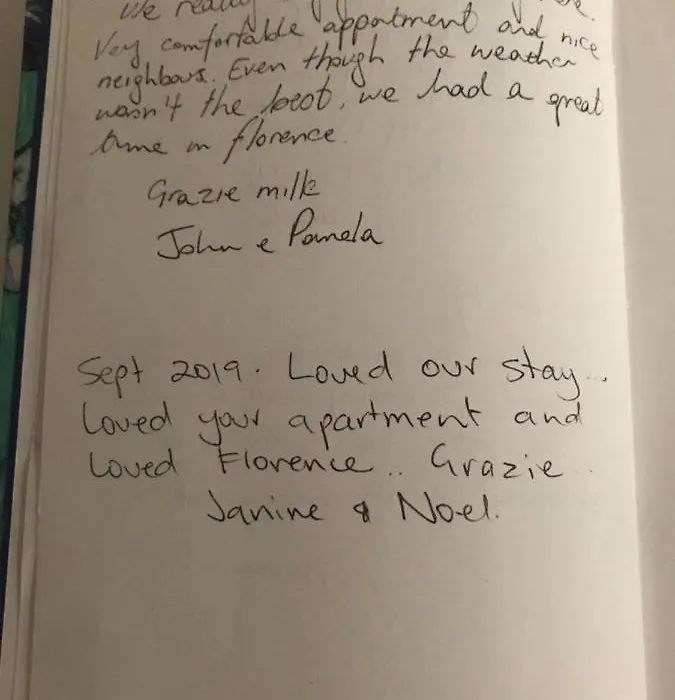 We really
Very comfortable appartment and nice
neighbours. Even though the weather
wasn't the best, we had a great
time in florence.
Grazie mille
John e Pamela
Sept 2019. Loved our stay...
Loved your apartment and
Loved Florence.. Grazie.
Janine & Noel.